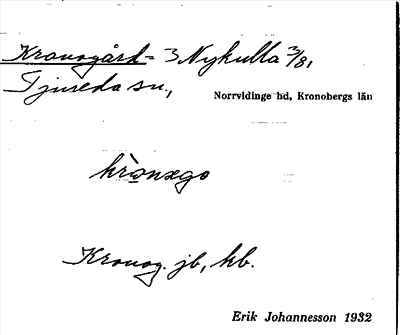 Kronogård = 3 Nykulla 3/8,
Tjureda sn,
Norrvidinge hd, Kronobergs län
krònəgo
Kronog. jb, kb.
Erik Johannesson 1932